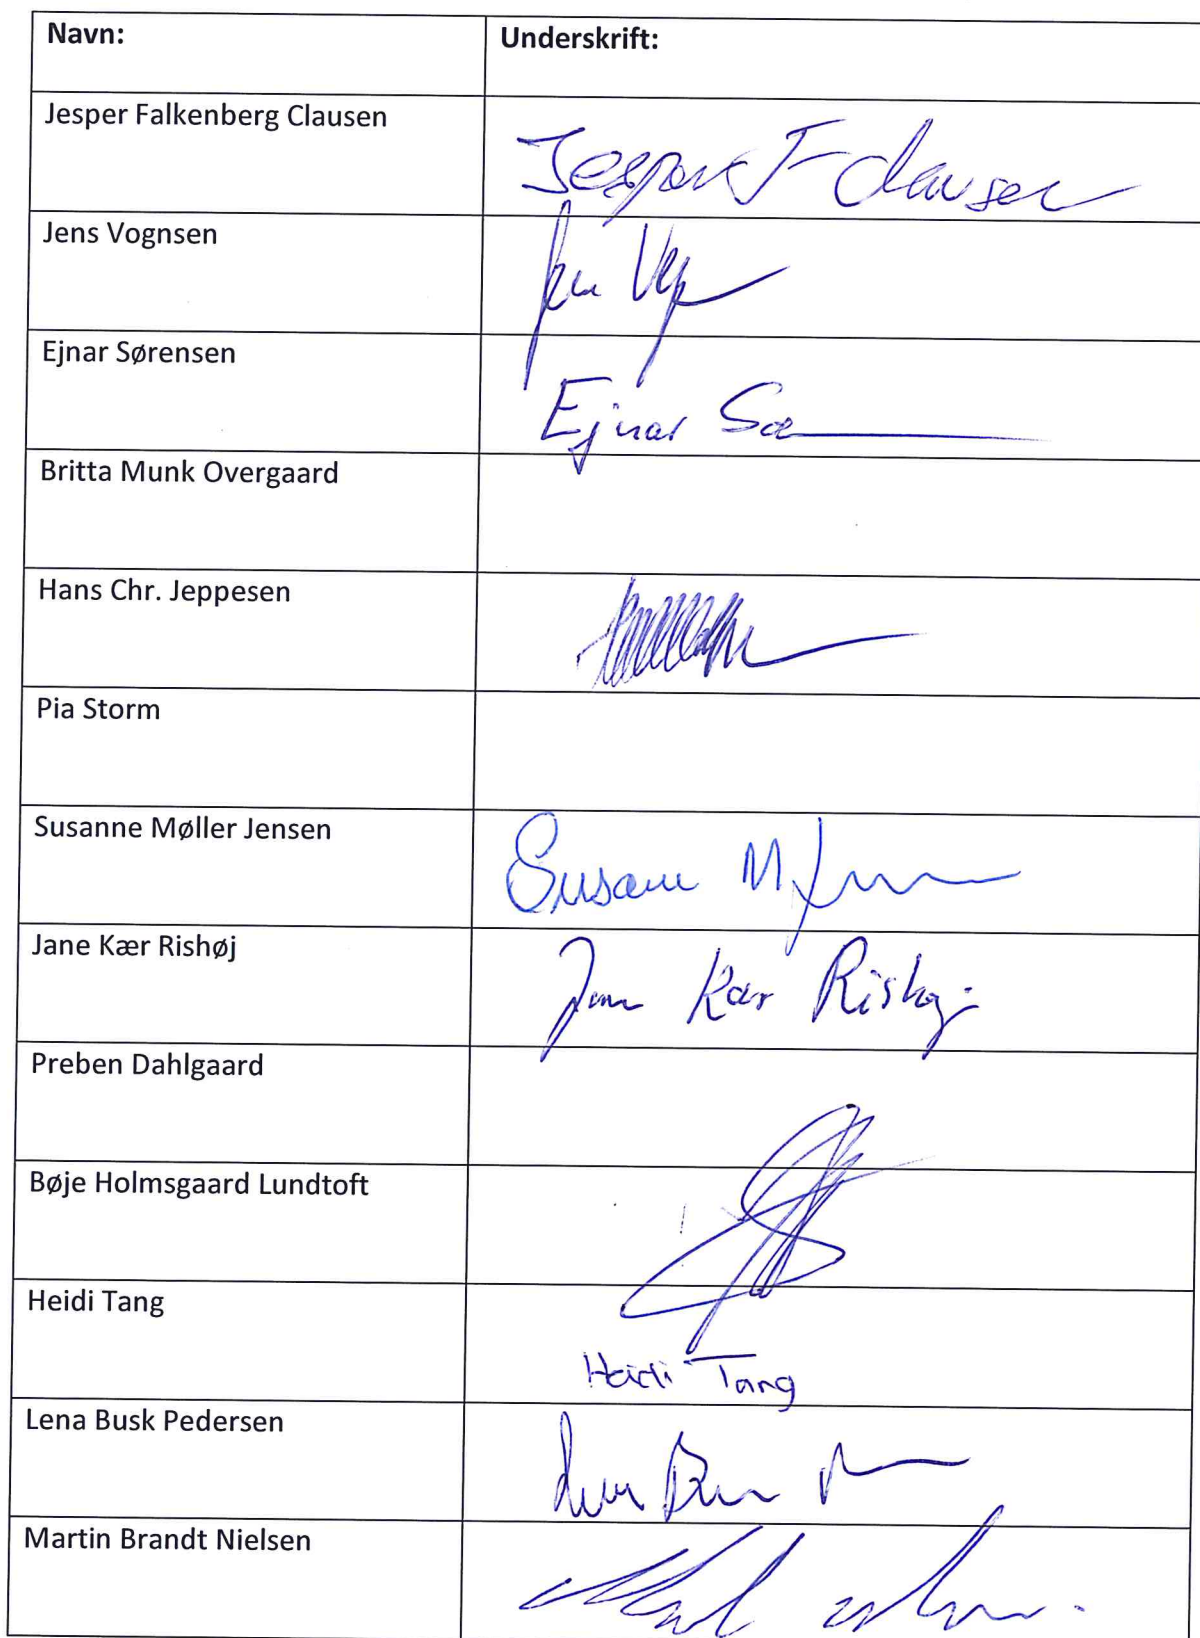 Navn: Underskrift:
Jesper Falkenberg Clausen Jesper F Clausen
Jens Vognsen
Ejnar Sørensen Ejnar Sø
Britta Munk Overgaard
Hans Chr. Jeppesen
Pia Storm
Susanne Møller Jensen Susanne M
Jane Kær Rishøj Jane Kær Rishøj
Preben Dahlgaard
Bøje Holmsgaard Lundtoft
Heidi Tang Heidi Tang
Lena Busk Pedersen
Martin Brandt Nielsen